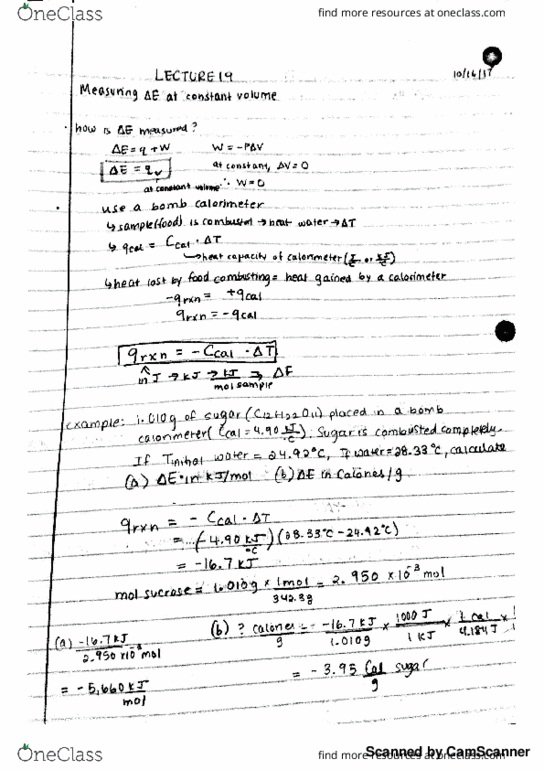 OneClass
find more resources at oneclass.com
LECTURE 19
10/16/17
Measuring ΔE at constant volume
· how is ΔE measured?
ΔE = q + W W = -PΔV
ΔE = qv at constant, ΔV = 0
at constant volume ∴ W = 0
· use a bomb calorimeter
↳ sample (food) is combusted → heat water → ΔT
↳ qcal = Ccal · ΔT
↳ heat capacity of calorimeter (J/°C or kJ/°C)
↳ heat lost by food combusting = heat gained by a calorimeter
-qrxn = +qcal
qrxn = -qcal
qrxn = -Ccal · ΔT
in J → kJ → kJ/mol sample → ΔE
example: 1.010g of sugar (C12H22O11) placed in a bomb
calorimeter (Ccal = 4.90 kJ/°C). Sugar is combusted completely.
If Tinitial water = 24.92°C, Tf water = 28.33°C, calculate
(a) ΔE in kJ/mol (b) ΔE in Calories/g
qrxn = - Ccal · ΔT
= (-4.90 kJ/°C)(28.33°C - 24.92°C)
= -16.7 kJ
mol sucrose = 1.010g × 1mol/342.3g = 2.950 × 10⁻³ mol
(a) -16.7 kJ/2.950 × 10⁻³ mol (b) ? calories/g = -16.7 kJ/1.010g × 1000 J/1 kJ × 1 cal/4.184 J ×
= -5,660 kJ/mol = -3.95 Cal/g sugar
Scanned by CamScanner
OneClass
find more resources at oneclass.com